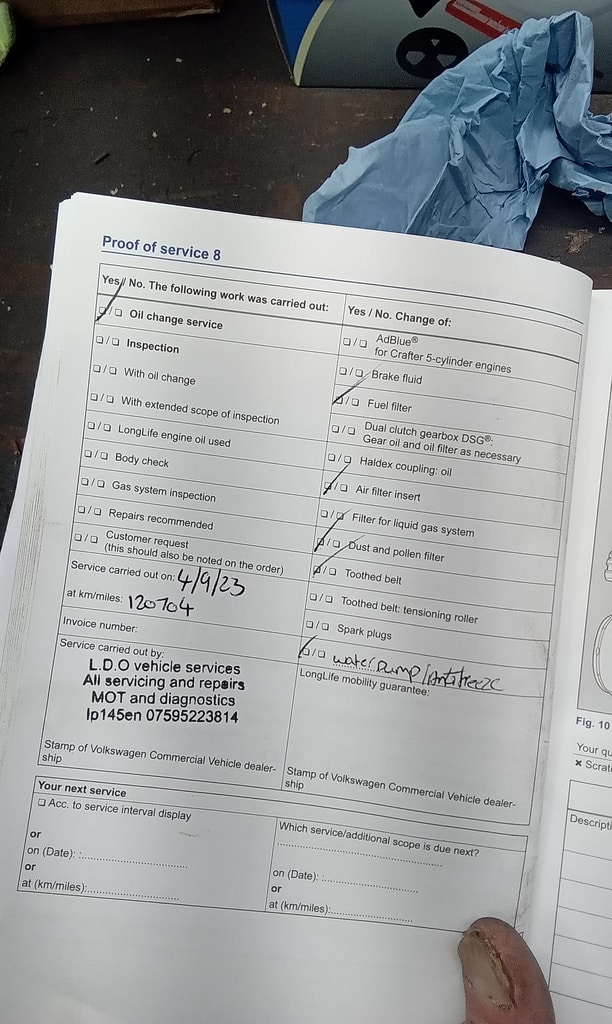 Proof of service 8
Yes / No. The following work was carried out:
❑ / ❑ Oil change service
❑ / ❑ Inspection
❑ / ❑ With oil change
❑ / ❑ With extended scope of inspection
❑ / ❑ LongLife engine oil used
❑ / ❑ Body check
❑ / ❑ Gas system inspection
❑ / ❑ Repairs recommended
❑ / ❑ Customer request
(this should also be noted on the order)
Service carried out on: 4/9/23
at km/miles: 120704
Invoice number:
Service carried out by:
L.D.O vehicle services
All servicing and repairs
MOT and diagnostics
Ip145en 07595223814
Stamp of Volkswagen Commercial Vehicle dealer-
ship
Yes / No. Change of:
❑ / ❑ AdBlue®
for Crafter 5-cylinder engines
❑ / ❑ Brake fluid
❑ / ❑ Fuel filter
❑ / ❑ Dual clutch gearbox DSG®:
Gear oil and oil filter as necessary
❑ / ❑ Haldex coupling: oil
❑ / ❑ Air filter insert
❑ / ❑ Filter for liquid gas system
❑ / ❑ Dust and pollen filter
❑ / ❑ Toothed belt
❑ / ❑ Toothed belt: tensioning roller
❑ / ❑ Spark plugs
❑ / ❑ water pump/Antifreeze
LongLife mobility guarantee:
Stamp of Volkswagen Commercial Vehicle dealer-
ship
Your next service
❑ Acc. to service interval display
or
on (Date):
or
at (km/miles):
Which service/additional scope is due next?
on (Date):
or
at (km/miles):
Fig. 10
Your